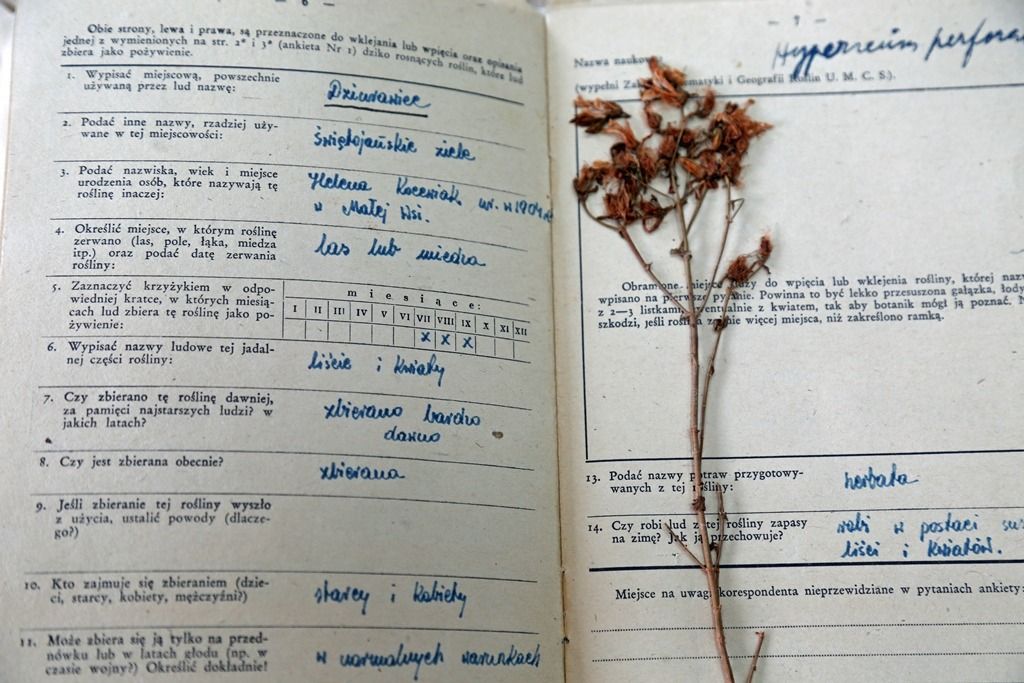 — 6 —
Obie strony, lewa i prawa, są przeznaczone do wklejania lub wpięcia oraz opisania
jednej z wymienionych na str. 2* i 3* (ankieta Nr 1) dziko rosnących roślin, które lud
zbiera jako pożywienie.
1. Wypisać miejscową, powszechnie
używaną przez lud nazwę:
Dziurawiec
2. Podać inne nazwy, rzadziej uży-
wane w tej miejscowości:
świętojańskie ziele
3. Podać nazwiska, wiek i miejsce
urodzenia osób, które nazywają tę
roślinę inaczej:
Helena ur. w 1904 r.
w Małej Wsi.
4. Określić miejsce, w którym roślinę
zerwano (las, pole, łąka, miedza
itp.) oraz podać datę zerwania
rośliny:
las lub miedza
5. Zaznaczyć krzyżykiem w odpo-
wiedniej kratce, w których miesią-
cach lud zbiera tę roślinę jako po-
żywienie:
miesiące:
I II III IV V VI VII VIII IX X XI XII
x x x
6. Wypisać nazwy ludowe tej jadal-
nej części rośliny:
liście i kwiaty
7. Czy zbierano tę roślinę dawniej,
za pamięci najstarszych ludzi? w
jakich latach?
zbierano bardzo
dawno
8. Czy jest zbierana obecnie?
zbierana
9. Jeśli zbieranie tej rośliny wyszło
z użycia, ustalić powody (dlacze-
go?)
10. Kto zajmuje się zbieraniem (dzie-
ci, starcy, kobiety, mężczyźni?)
starcy i kobiety
11. Może zbiera się ją tylko na przed-
nówku lub w latach głodu (np. w
czasie wojny?) Określić dokładnie!
w normalnych warunkach
— 7 —
Nazwa naukowa
Hypericum perfora
(wypełni Zak ematyki i Geografii Roślin U. M. C. S.).
Obramowane miejsce służy do wpięcia lub wklejenia rośliny, której naz
wpisano na pierwsze pytanie. Powinna to być lekko przesuszona gałązka, łody
z 2—3 listkami ewentualnie z kwiatem, tak aby botanik mógł ją poznać. N
szkodzi, jeśli roślina zajmie więcej miejsca, niż zakreślono ramką.
13. Podać nazwy potraw przygotowy-
wanych z tej rośliny:
herbata
14. Czy robi lud z tej rośliny zapasy
na zimę? Jak ją przechowuje?
robi w postaci sus
liści i kwiatów.
Miejsce na uwagi korespondenta nieprzewidziane w pytaniach ankiety: